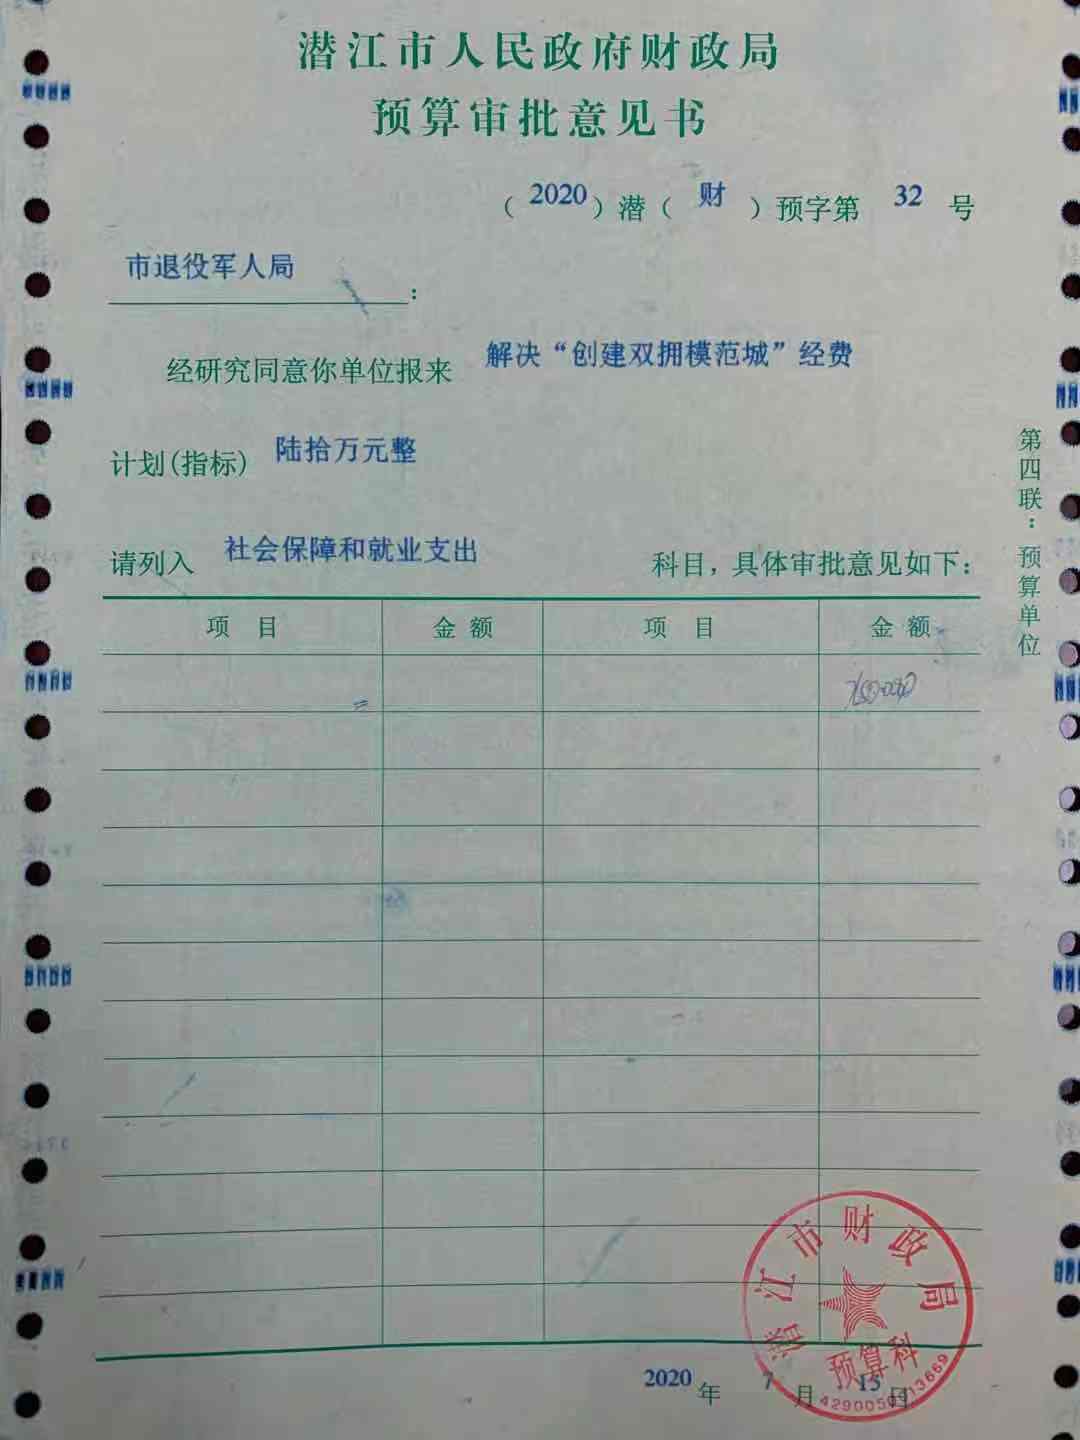 潜江市人民政府财政局
预算审批意见书
（2020）潜（财）预字第 32 号
市退役军人局：
经研究同意你单位报来 解决“创建双拥模范城”经费
计划(指标) 陆拾万元整
请列入 社会保障和就业支出 科目，具体审批意见如下：
项目 金额 项目 金额
第四联：预算单位
潜江市财政局
预算科
2020年7月15日